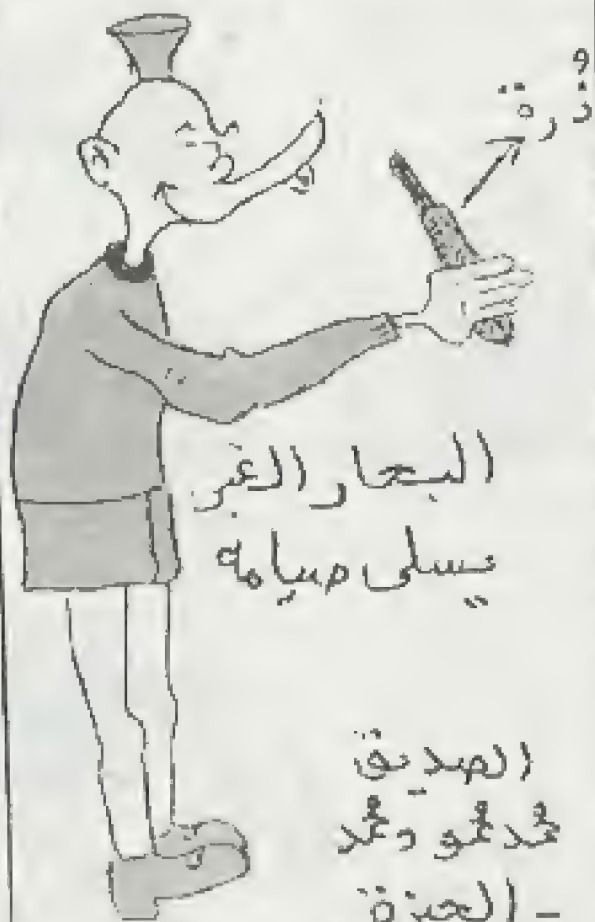 ذُرة
البعار الغبر
يسلى صيامه
الصديق
محمد محمود محمد
- الجيزة